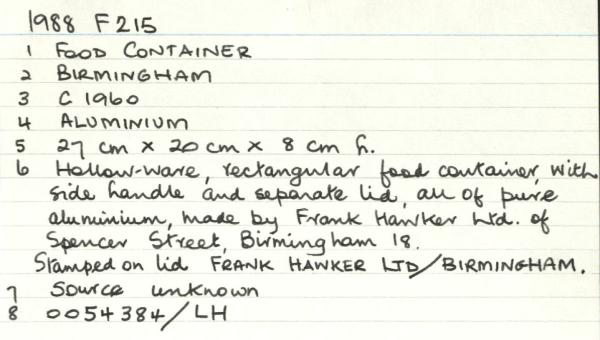 1988 F215
1 FOOD CONTAINER
2 BIRMINGHAM
3 C 1960
4 ALUMINIUM
5 27 cm x 20 cm x 8 cm h.
6 Hollow-ware, rectangular food container, with
side handle and separate lid, all of pure
aluminium, made by Frank Hawker Ltd. of
Spencer Street, Birmingham 18.
Stamped on lid FRANK HAWKER LTD/BIRMINGHAM.
7 Source unknown
8 0054384/LH